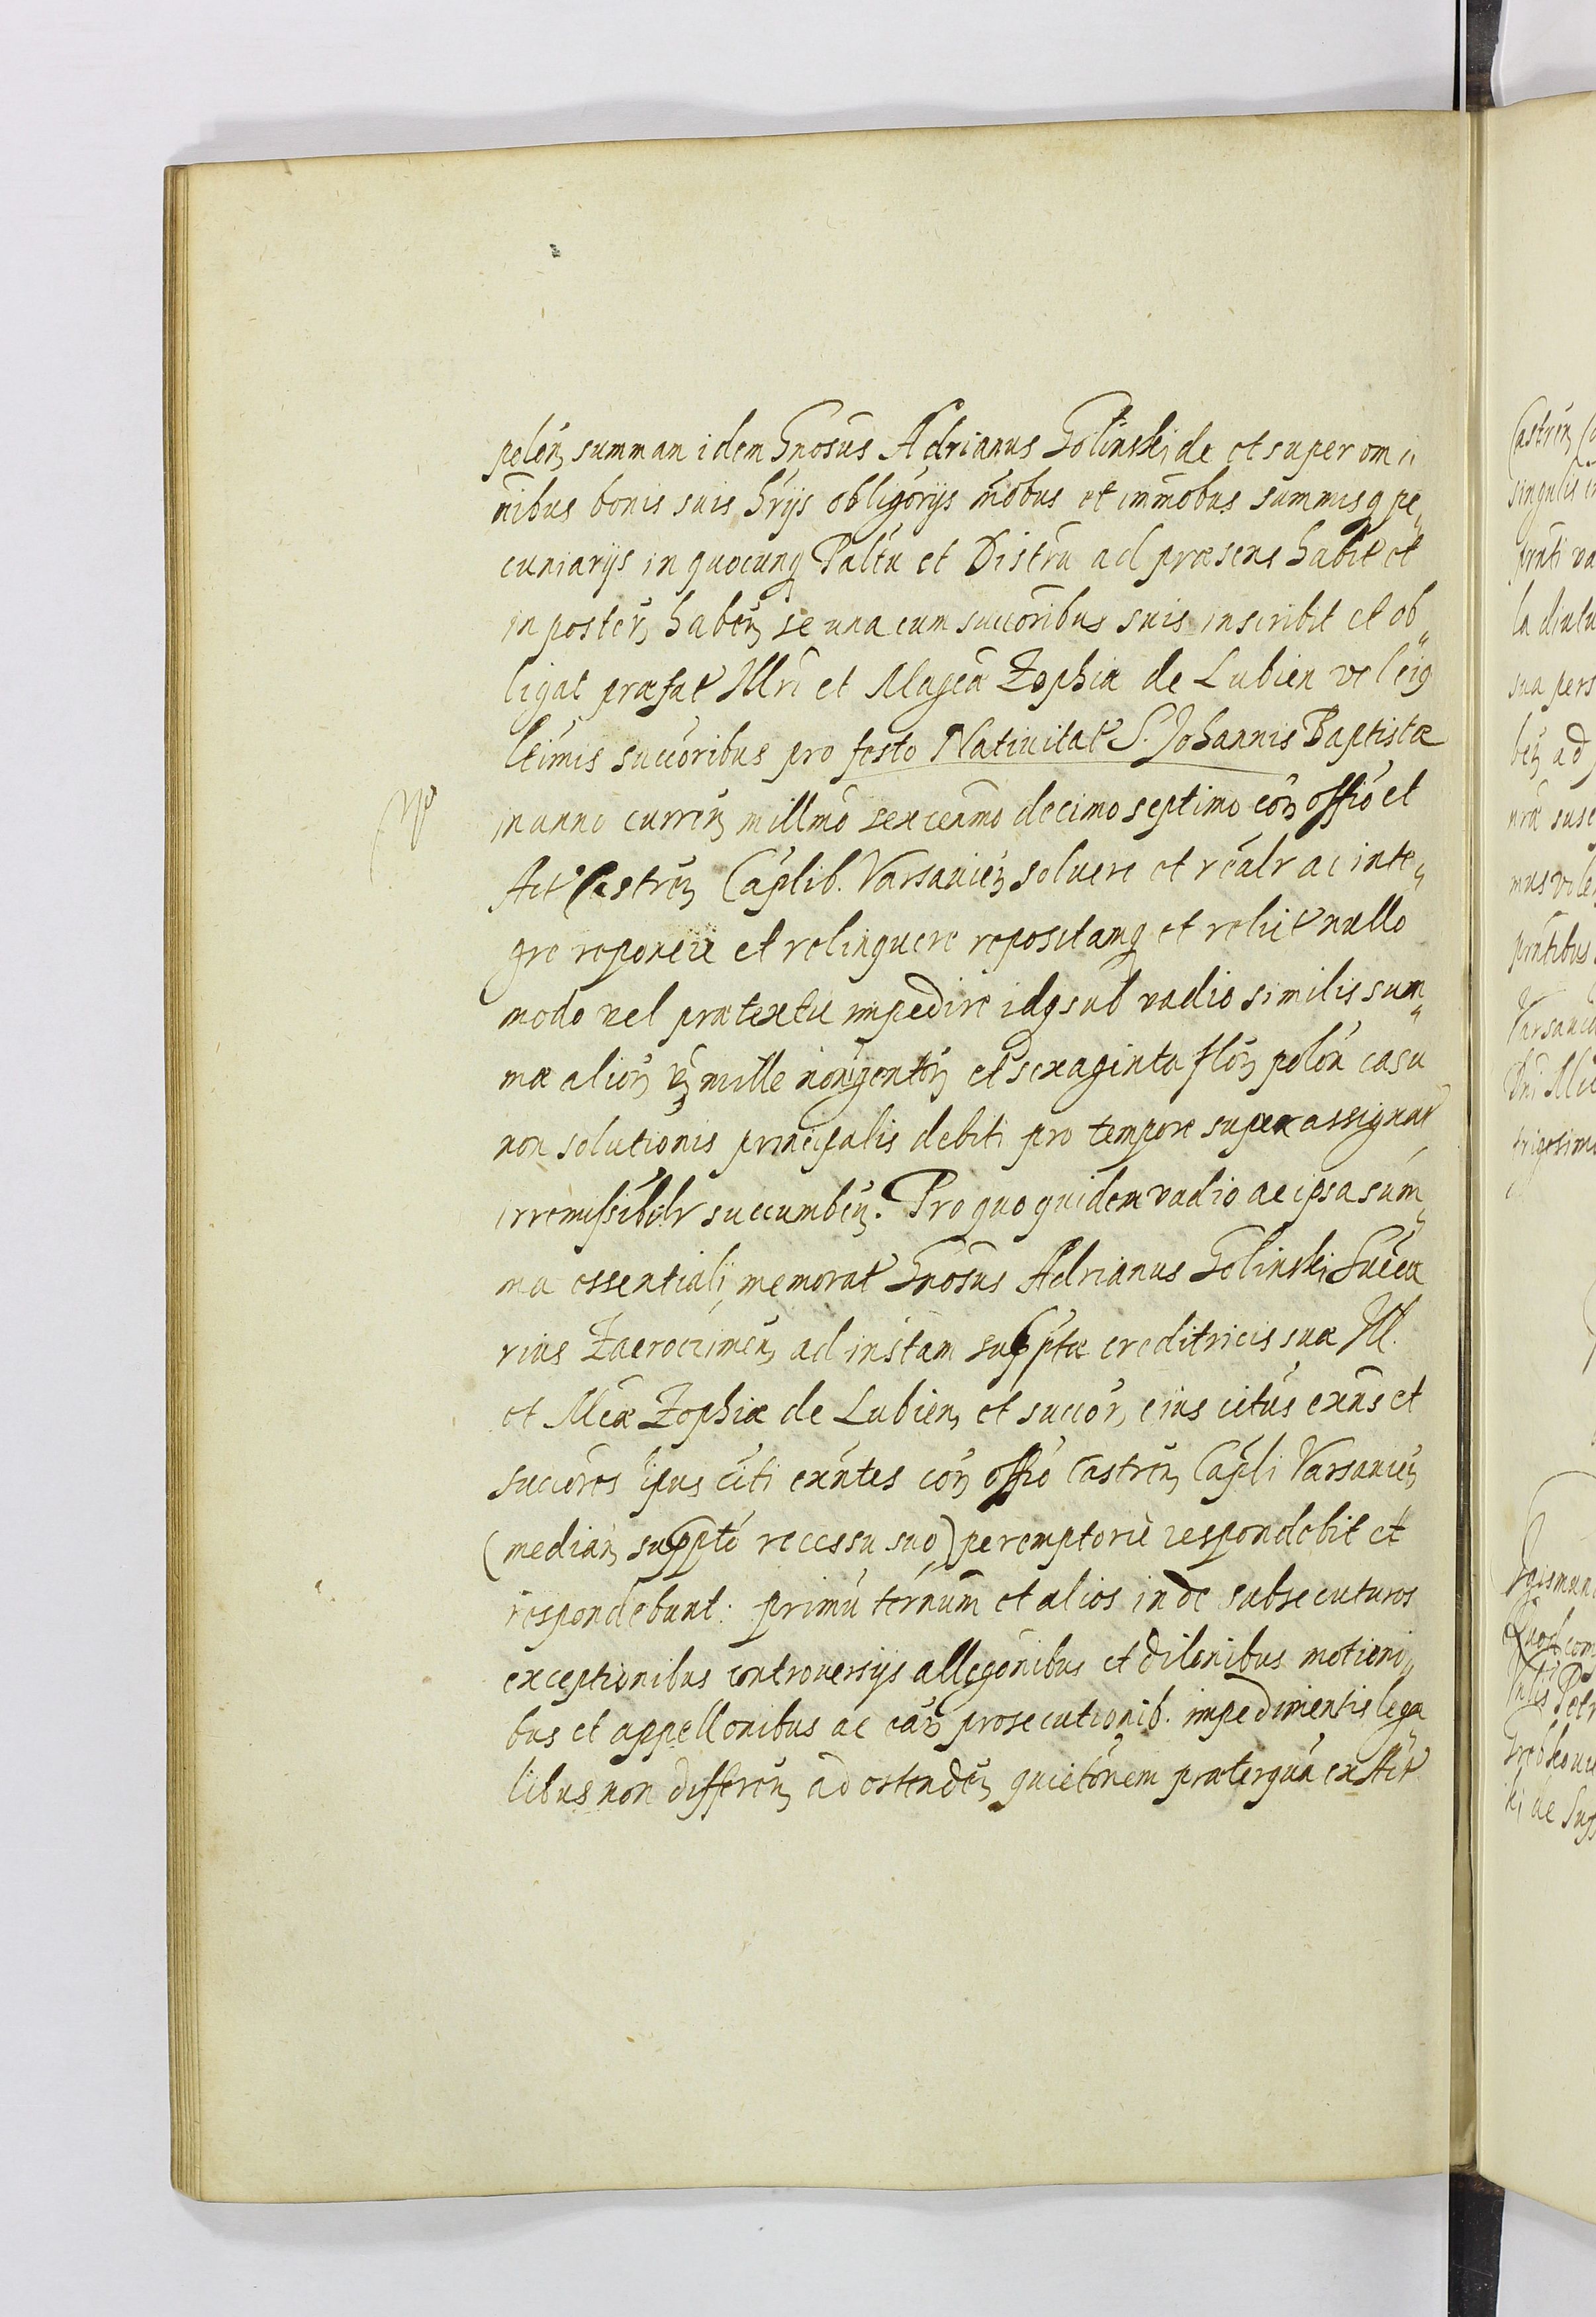 polon summam idem Gnosus Adrianus Golinski de et super om
nibus bonis suis hrijs obligorijs mobus et immobus summisq pe
cuniarijs in quocunq Paltu et Distru ad præsens habit et
in poster haben se una cum succoribus suis inscribit et ob
ligat præfat Illri et Magca Zophiæ de Lubien vel eiq
ltimis succoribus pro festo Nativitat S. Johannis Baptistæ
in anno curren millmo sexcenmo decimo septimo cor offio et
Act Castren Caplib. Varsavien solvere et realr ac inte
gre reponere et relinquere repositamq et relict nullo
modo vel prætextu impedire idq sub vadio similis sum
mæ alior mille nongentor et sexaginta flor polon casu
non solutionis principalis debiti pro tempore super assignat
irremissiblr succumben. Pro quo quidem vadio ac ipsa sum
ma essentiali memorat Gnosus Adrianus Golinski Succa
rius Zacroczimen ad instam supptæ creditricis suæ Ill.
et Mcæ Zophiæ de Lubien et succor eius citus exns et
succores ipius citi exntes cor offio Castren Capli Varsavien
(median suppto recessu suo) peremptorie respondebit et
respondebunt. primu ternum et alios inde subsecuturos
exceptionibus controversijs allegonibus et dilonibus motioni
bus et appellonibus ac ear prosecutionib. impedimentis lega
libus non differen ad ostenden quietonem præterqua ex Act